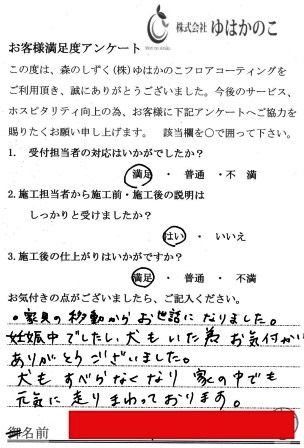 株式会社 ゆはかのこ
お客様満足度アンケート
この度は、森のしずく(株)ゆはかのこフロアコーティングを
ご利用頂き、誠にありがとうございました。今後のサービス、
ホスピタリティ向上の為、お客様に下記アンケートへご協力を
賜りたくお願い申し上げます。 該当欄を○で囲って下さい。
1. 受付担当者の対応はいかがでしたか?
満足 ・ 普通 ・不 満
2.施工担当者から施工前・施工後の説明は
しっかりと受けましたか?
はい ・ いいえ
3.施工後の仕上がりはいかがですか?
満足 ・ 普通 ・ 不満
お気付きの点がございましたら、ご記入ください。
・家具の移動からお世話になりました。
妊娠中でしたし、犬もいた為お気付かい
ありがとうございました。
犬もすべらなくなり 家の中でも
元気に走りまわっております。
御名前